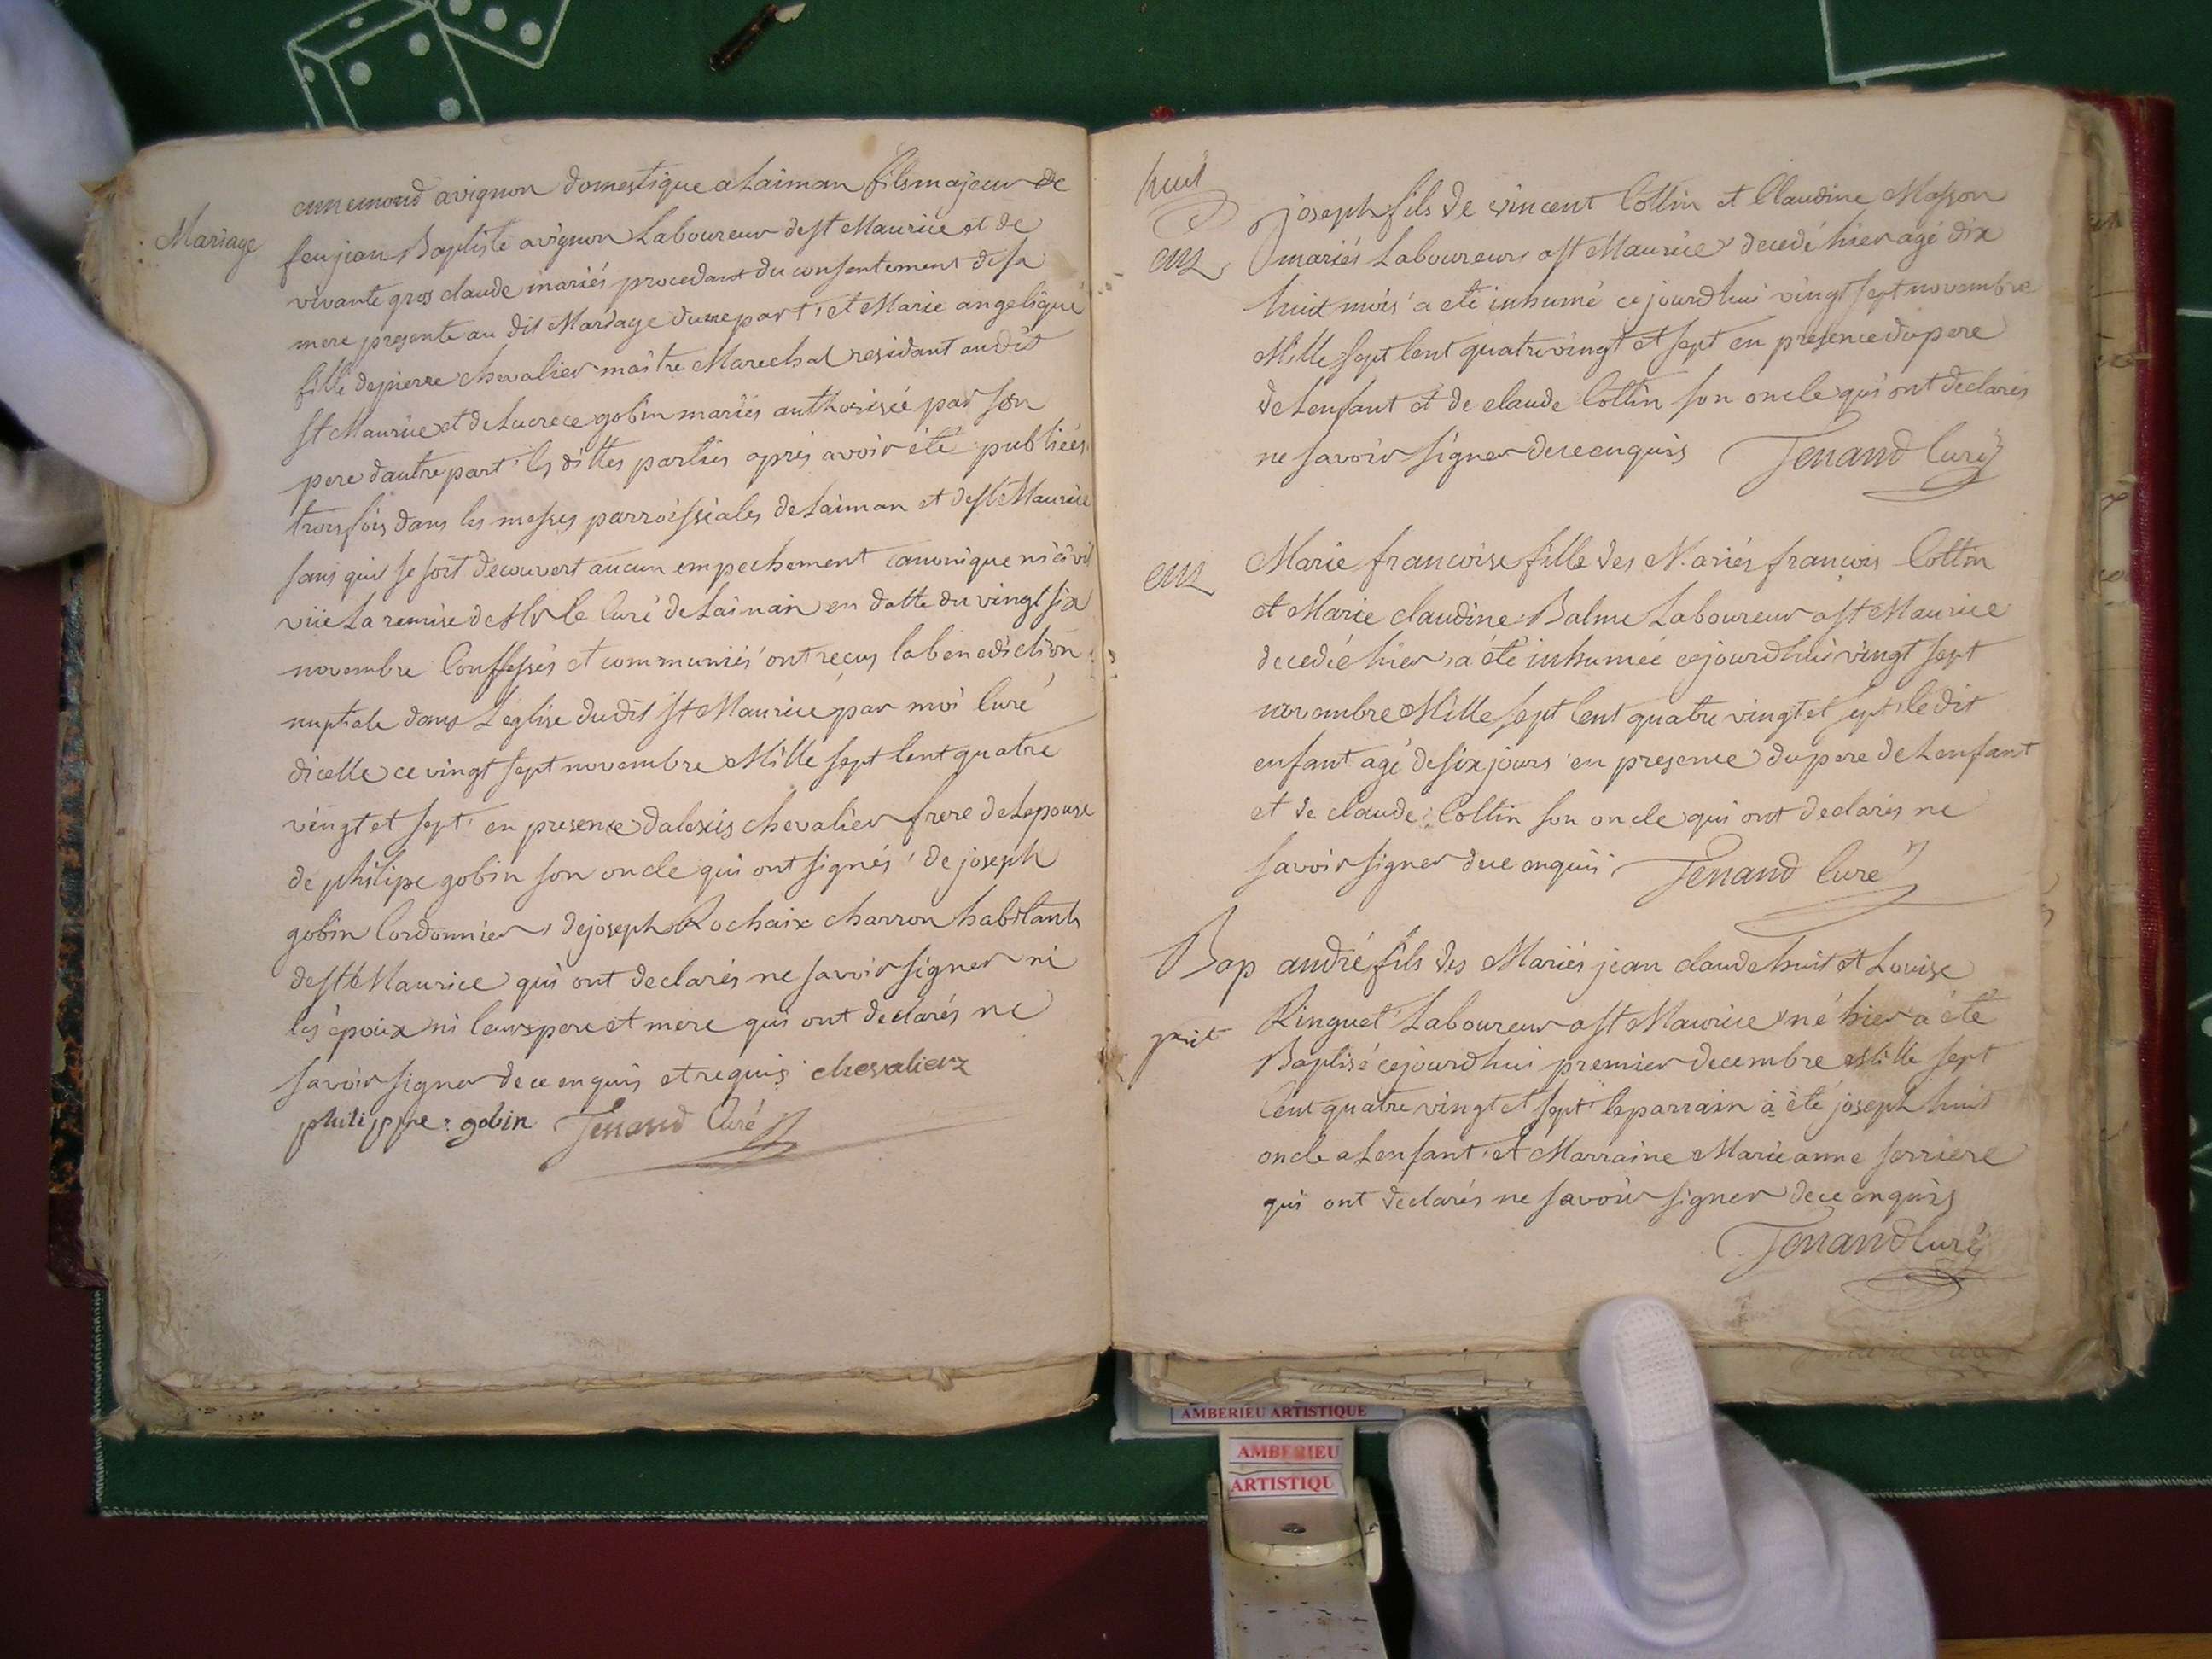 Mariage
annemond avignon domestique a Laiman fils majeur de
feu jean Baptiste avignon Laboureur de st Maurice et de
vivante gros claude mariés procedant du consentement de sa
mere presente au dit Mariage dune part, et Marie angelique
fille de pierre chevalier maître Marechal residant au dit
st Maurice et de Lucrece gobin mariés authorisée par son
pere dautre part, les dittes parties aprés avoir été publiées
trois fois dans les messes parroissiales de Laiman et de st Maurice
sans qui se soit decouvert aucun empechement canonique ni civil
vüe La remise de Mr le Curé de Laiman en datte du vingt six
novembre Confessés et communiés ont reçus la benediction
nuptiale dans L'eglise du dit st Maurice par moi Curé
dicelle ce vingt sept novembre Mille sept Cent quatre
vingt et sept, en presence d'alexis chevalier frere de Lepouse
de philipe gobin son oncle qui ont signés, de joseph
gobin Cordonnier, de joseph Rochaix charron habitants
de st Maurice qui ont declarés ne savoir signer ni
les époux ni leurs pere et mere qui ont declarés ne
savoir signer de ce enquis et requis chevalier
philippe : gobin Tenand Curé
huit
enz
joseph fils de vincent Cottin et Claudine Masson
mariés Laboureurs a st Maurice decedé hier agé dix
huit mois a eté inhumé ce jourdhui vingt sept novembre
Mille sept Cent quatre vingt et sept en presence du pere
de Lenfant et de claude Cottin son oncle qui ont declarés
ne savoir signer de ce enquis Tenand Curé
enz
Marie francoise fille des Mariés françois Cottin
et Marie claudine Balme Laboureur a st Maurice
decedée hier, a été inhumée cejourdhui vingt sept
novembre Mille sept Cent quatre vingt et sept, le dit
enfant agé de six jours en presence du pere de Lenfant
et de claude Cottin son oncle qui ont declarés ne
savoir signer de ce enquis Tenand Curé
Bap
andré fils des Mariés jean claude huit et Louise
Ringuet Laboureur a st Maurice né hier a été
Baptisé cejourdhui premier decembre Mille sept
Cent quatre vingt et sept le parrain à été joseph huit
oncle a Lenfant, et Marraine Marie anne ferriere
qui ont declarés ne savoir signer de ce enquis
Tenand Curé
AMBERIEU ARTISTIQUE
AMBERIEU
ARTISTIQU